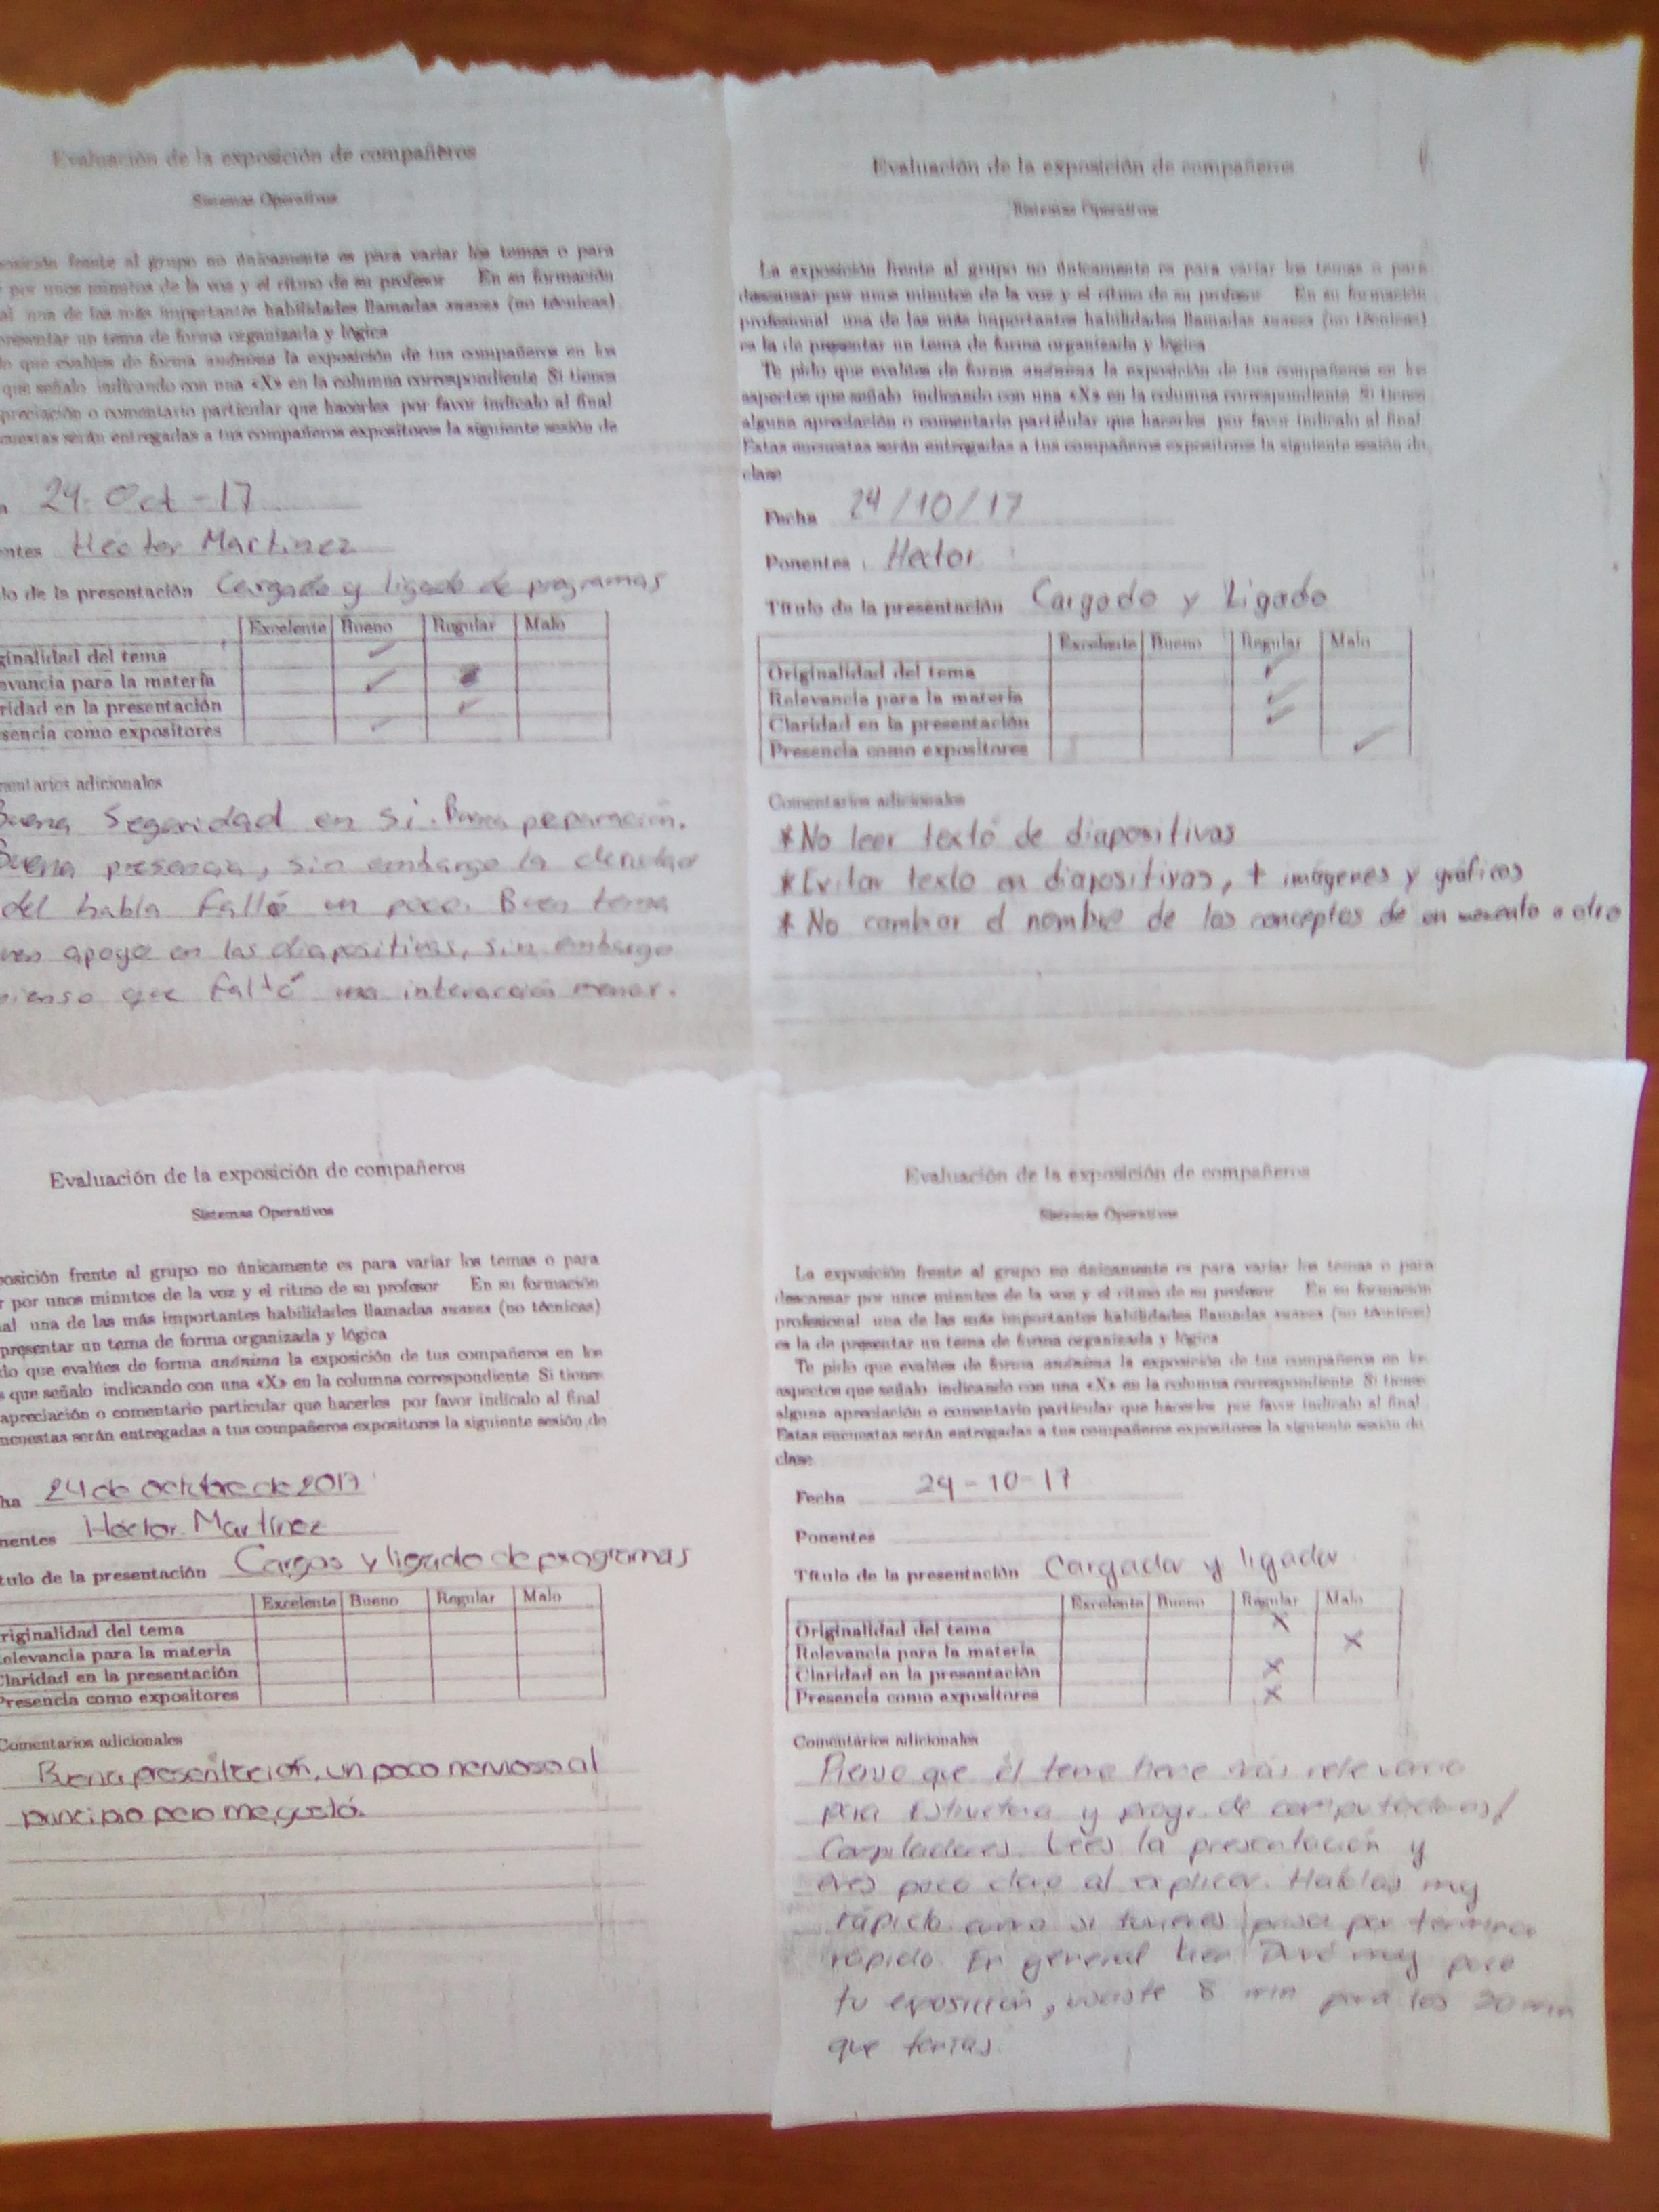 Evaluación de la exposición de compañeros
Sistemas Operativos
posición frente al grupo no únicamente es para variar los temas o para
por unos minutos de la voz y el ritmo de su profesor En su formación
al una de las más importantes habilidades llamadas suaves (no técnicas)
presentar un tema de forma organizada y lógica
do que evalúes de forma anónima la exposición de tus compañeros en los
que señalo indicando con una «X» en la columna correspondiente Si tienes
apreciación o comentario particular que hacerles por favor indícalo al final
cuestas serán entregadas a tus compañeros expositores la siguiente sesión de
a 24-Oct-17
entes Hector Martinez
lo de la presentación Cargado y ligado de programas
Excelente Bueno Regular Malo
ginalidad del tema
evancia para la materia
ridad en la presentación
sencia como expositores
mentarios adicionales
Buena Segaridad en si. Buena
Buena presencia, sin embargo la
del habla falló un poco. Buen tema
apoyo en las diapositivas, sin embargo
pienso que faltó una interacción menor.
Evaluación de la exposición de compañeros
Sistemas Operativos
La exposición frente al grupo no únicamente es para variar los temas o para
descansar por unos minutos de la voz y el ritmo de su profesor En su formación
profesional una de las más importantes habilidades llamadas suaves (no técnicas)
es la de presentar un tema de forma organizada y lógica
Te pido que evalúes de forma anónima la exposición de tus compañeros en los
aspectos que señalo indicando con una «X» en la columna correspondiente Si tienes
alguna apreciación o comentario particular que hacerles por favor indícalo al final
Estas encuestas serán entregadas a tus compañeros expositores la siguiente sesión de
clase
Fecha 24/10/17
Ponentes Hector
Título de la presentación Cargado y Ligado
Excelente Bueno Regular Malo
Originalidad del tema ✓
Relevancia para la materia ✓
Claridad en la presentación ✓
Presencia como expositores ✓
Comentarios adicionales
* No leer texto de diapositivas
* Evitar texto en diapositivas, + imágenes y gráficos
* No cambiar el nombre de los conceptos de un momento a otro
Evaluación de la exposición de compañeros
Sistemas Operativos
posición frente al grupo no únicamente es para variar los temas o para
r por unos minutos de la voz y el ritmo de su profesor En su formación
al una de las más importantes habilidades llamadas suaves (no técnicas)
presentar un tema de forma organizada y lógica
do que evalúes de forma anónima la exposición de tus compañeros en los
s que señalo indicando con una «X» en la columna correspondiente Si tienes
apreciación o comentario particular que hacerles por favor indícalo al final
ncuestas serán entregadas a tus compañeros expositores la siguiente sesión de
ha 24 de octubre de 2017
nentes Héctor Martínez
tulo de la presentación Cargas y ligado de programas
Excelente Bueno Regular Malo
riginalidad del tema
Relevancia para la materia
Claridad en la presentación
Presencia como expositores
Comentarios adicionales
Buena presentación, un poco nervioso al
principio pero me gustó.
Evaluación de la exposición de compañeros
Sistemas Operativos
La exposición frente al grupo no únicamente es para variar los temas o para
descansar por unos minutos de la voz y el ritmo de su profesor En su formación
profesional una de las más importantes habilidades llamadas suaves (no técnicas)
es la de presentar un tema de forma organizada y lógica
Te pido que evalúes de forma anónima la exposición de tus compañeros en los
aspectos que señalo indicando con una «X» en la columna correspondiente Si tienes
alguna apreciación o comentario particular que hacerles por favor indícalo al final
Estas encuestas serán entregadas a tus compañeros expositores la siguiente sesión de
clase
Fecha 24-10-17
Ponentes
Título de la presentación Cargador y ligador
Excelente Bueno Regular Malo
Originalidad del tema X
Relevancia para la materia X
Claridad en la presentación X
Presencia como expositores X
Comentarios adicionales
Pienso que el tema tiene más relevancia
para Estructura y progr. de computadoras/
Compiladores. Lees la presentación y
eres poco claro al explicar. Hablas muy
rápido como si tuvieras prisa por terminar
rápido. En general bien Duró muy poco
tu exposición, usaste 8 min para los 20 min
que tenías.